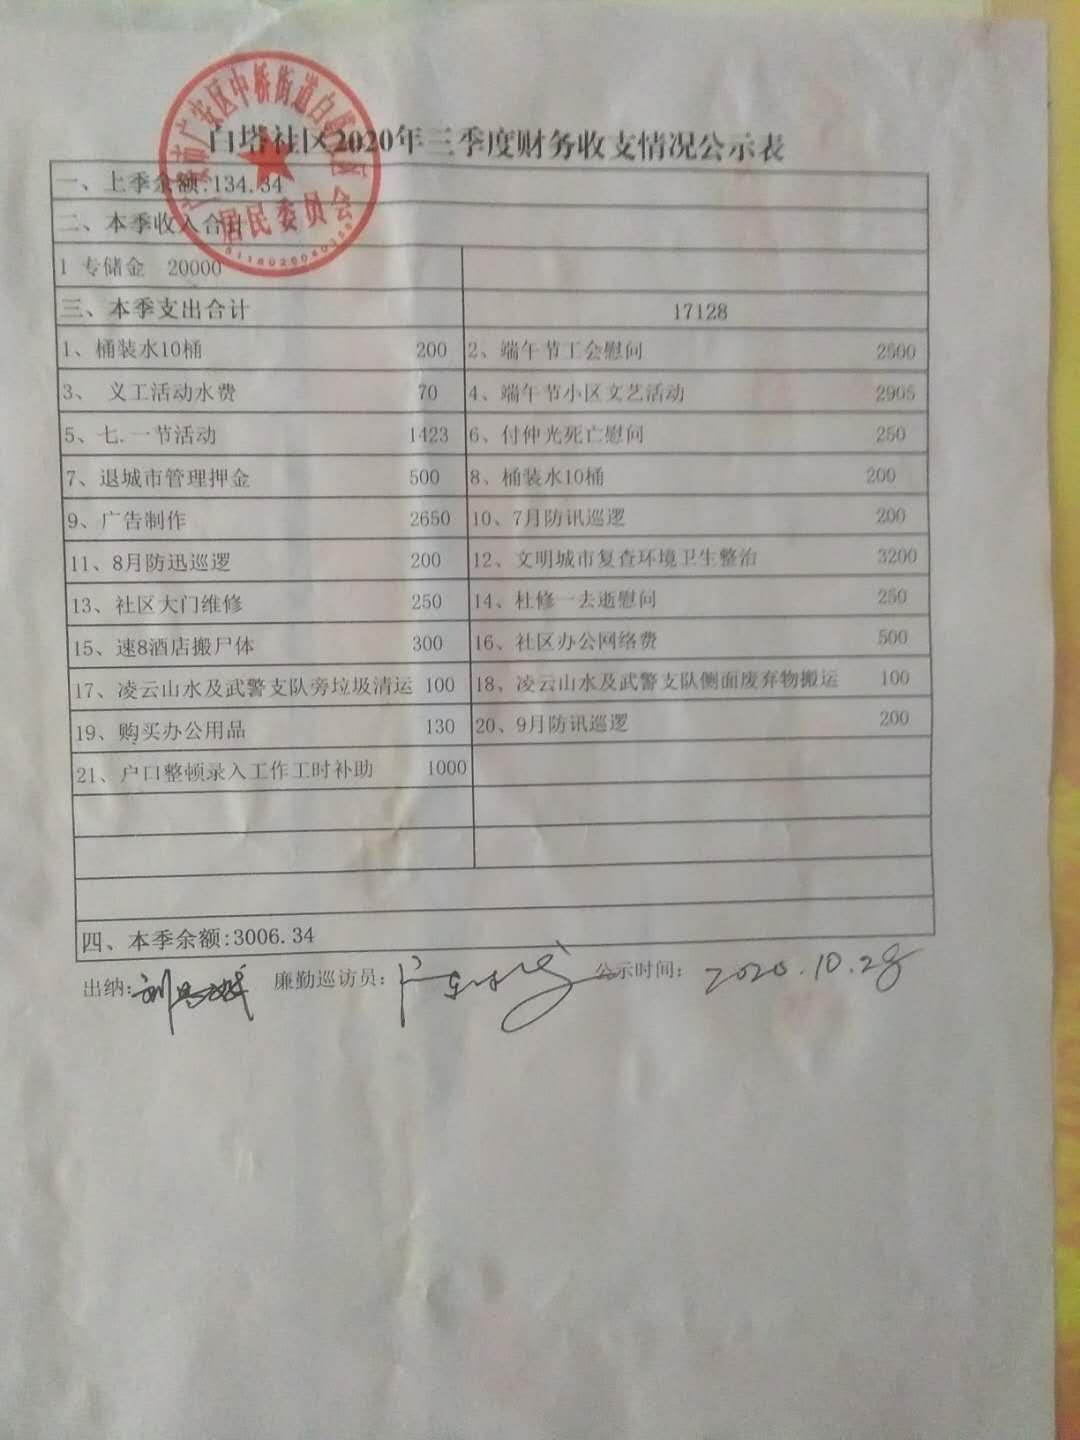 白塔社区2020年三季度财务收支情况公示表
一、上季余额:134.34
二、本季收入合计
1 专储金 20000
三、本季支出合计 17128
1、桶装水10桶 200 2、端午节工会慰问 2500
3、 义工活动水费 70 4、端午节小区文艺活动 2905
5、七.一节活动 1423 6、付仲光死亡慰问 250
7、退城市管理押金 500 8、桶装水10桶 200
9、广告制作 2650 10、7月防讯巡逻 200
11、8月防迅巡逻 200 12、文明城市复查环境卫生整治 3200
13、社区大门维修 250 14、杜修一去逝慰问 250
15、速8酒店搬尸体 300 16、社区办公网络费 500
17、凌云山水及武警支队旁垃圾清运 100 18、凌云山水及武警支队侧面废弃物搬运 100
19、购买办公用品 130 20、9月防讯巡逻 200
21、户口整顿录入工作工时补助 1000
四、本季余额:3006.34
出纳: 廉勤巡访员: 公示时间: 2020.10.28
广安区中桥街道白塔社区
居民委员会